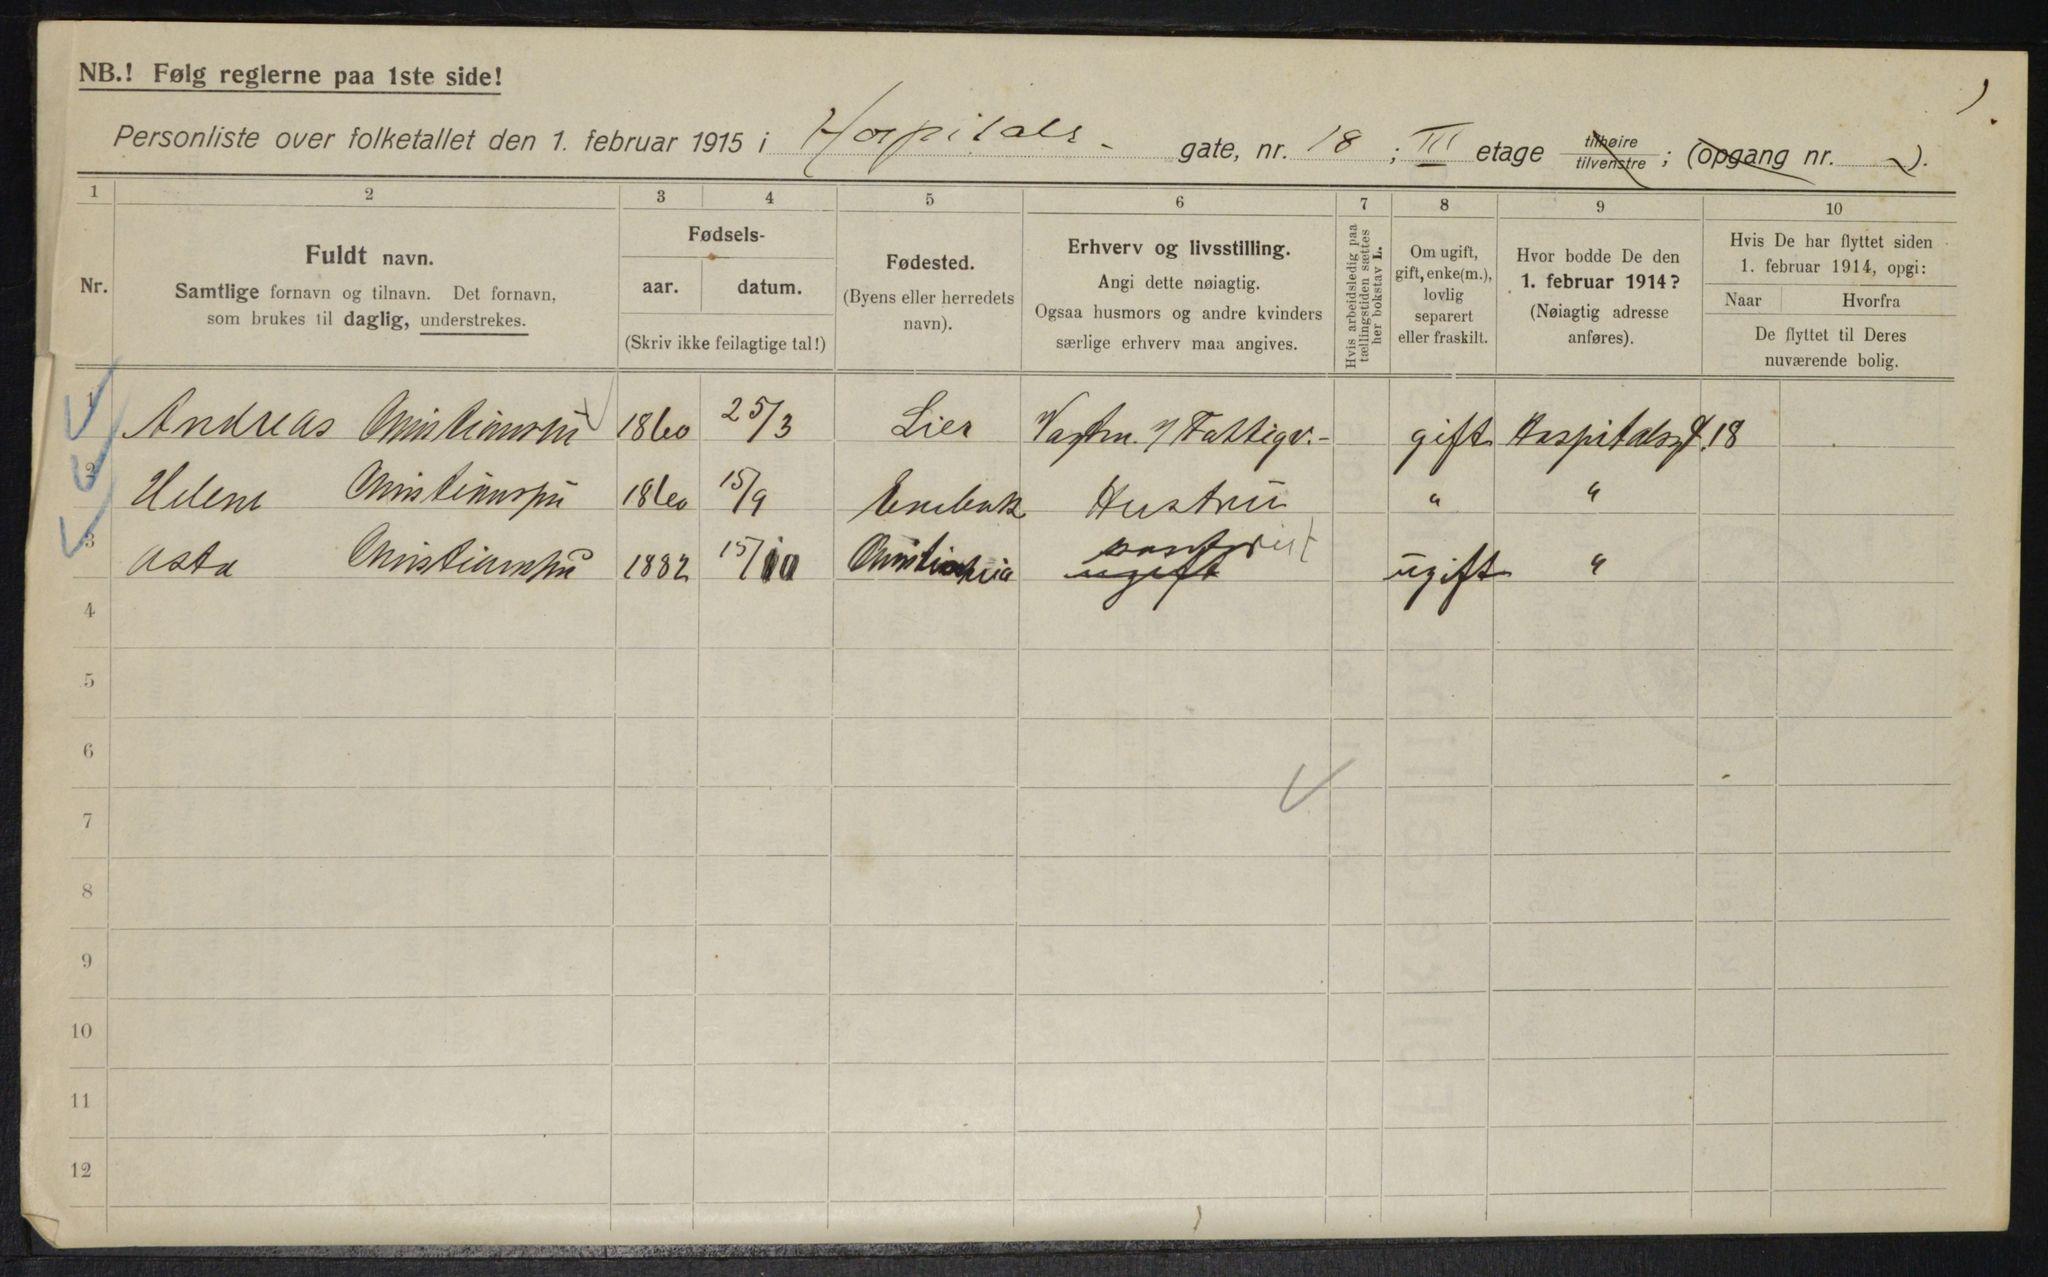 NB.! Følg reglerne paa 1ste side!
Personliste over folketallet den 1. februar 1915 i Hospitals- gate, nr. 18 ; III etage tilhøire tilvenstre ; (opgang nr. ).
1 2 3 4 5 6 7 8 9 10
Nr.
Fuldt navn.
Samtlige fornavn og tilnavn. Det fornavn,
som brukes til daglig, understrekes.
Fødsels-
aar. datum.
(Skriv ikke feilagtige tal!)
Fødested.
(Byens eller herredets
navn).
Erhverv og livsstilling.
Angi dette nøiagtig.
Ogsaa husmors og andre kvinders
særlige erhverv maa angives.
Hvis arbeidsledig paa
tællingstiden sættes
her bokstav L.
Om ugift,
gift, enke(m.),
lovlig
separert
eller fraskilt.
Hvor bodde De den
1. februar 1914?
(Nøiagtig adresse
anføres).
Hvis De har flyttet siden
1. februar 1914, opgi:
Naar Hvorfra
De flyttet til Deres
nuværende bolig.
1 Andreas Christiansen 1860 25/3 Lier Fattigv.- gift Hospitalsgt. 18
2 Helene Christiansen 1860 15/9 Hustru " "
3 Asta Christiansen 1882 15/10 Christiania ugift ugift "
4
5
6
7
8
9
10
11
12